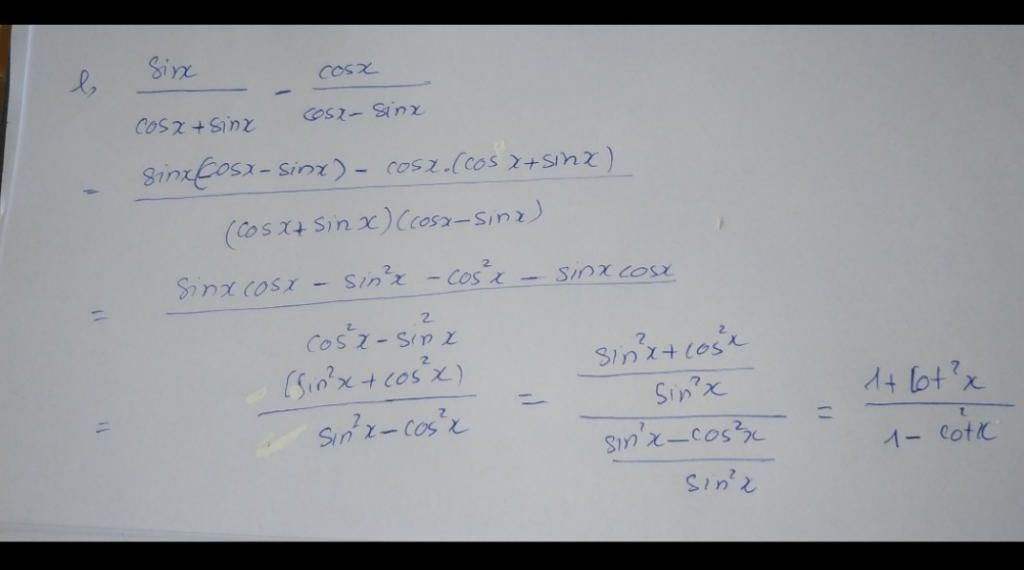 l, sinx / cosx + sinx - cosx / cosx - sinx
= sinx(cosx - sinx) - cosx.(cosx + sinx) / (cosx + sinx)(cosx - sinx)
= sinxcosx - sin²x - cos²x - sinxcosx / cos²x - sin²x
= (sin²x + cos²x) / sin²x - cos²x = sin²x + cos²x / sin²x / sin²x - cos²x / sin²x = 1 + cot²x / 1 - cot²x